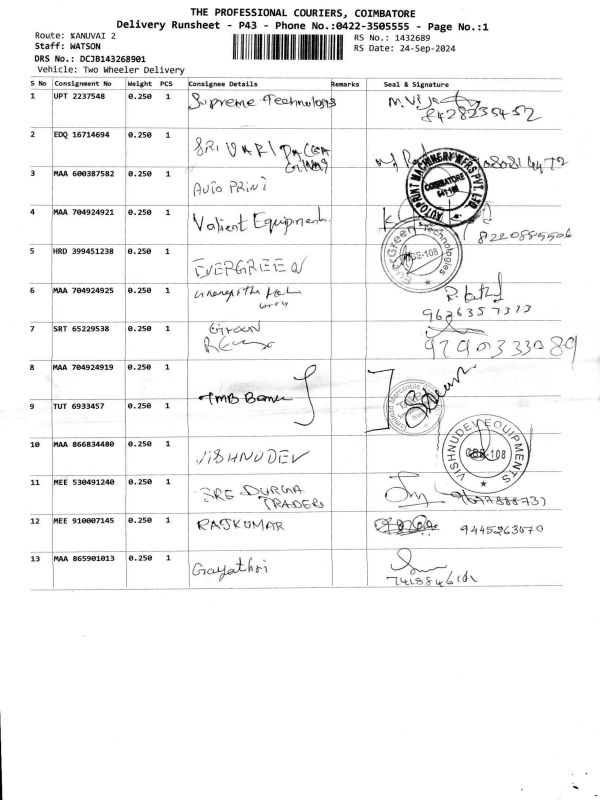 THE PROFESSIONAL COURIERS, COIMBATORE
Delivery Runsheet - P43 - Phone No.:0422-3505555 - Page No.:1
Route: KANUVAI 2
RS No.: 1432689
Staff: WATSON
RS Date: 24-Sep-2024
DRS No.: DCJB143268901
Vehicle: Two Wheeler Delivery
S No Consignment No Weight PCS Consignee Details Remarks Seal & Signature
1 UPT 2237548 0.250 1 Supreme Technologis
8428235452
2 EDQ 16714694 0.250 1 SRI VARI
3 MAA 600387582 0.250 1 AUTO PRINT
AUTOPRINT MACHINERY MFRS PVT. LTD.
COIMBATORE
4 MAA 704924921 0.250 1 Valient Equipment
8220885506
5 HRD 399451238 0.250 1 EVERGREEN
Ever Green Technologies
CBE-108
6 MAA 704924925 0.250 1
9626357373
7 SRT 65229538 0.250 1 Green
9290333089
8 MAA 704924919 0.250 1
TMB Bank
9 TUT 6933457 0.250 1
10 MAA 866834480 0.250 1 VISHNUDEV
VISHNUDEV EQUIPMENTS
CBE-108
11 MEE 530491240 0.250 1 SRE DURGA
TRADERS
12 MEE 910007145 0.250 1 RAJKUMAR 9445263070
13 MAA 865901013 0.250 1 Gayathri